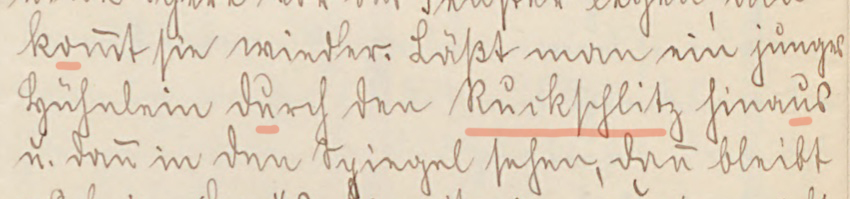 kom̄t sie wieder. Läßt man ein junges
Hühnlein durch den Ruckschlitz hinaus
u. dan̄ in den Spiegel sehen, dan̄ bleibt